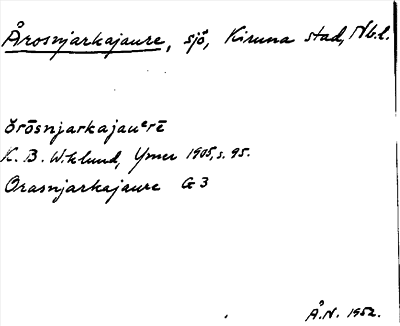 Årosnjarkajaure, sjö, Kiruna stad, Nb.l.
orōsnjarkajauᵉrē
K. B. Wiklund, Ymer 1905, s. 95.
Orasnjarkajaure G 3
Å.N. 1952.